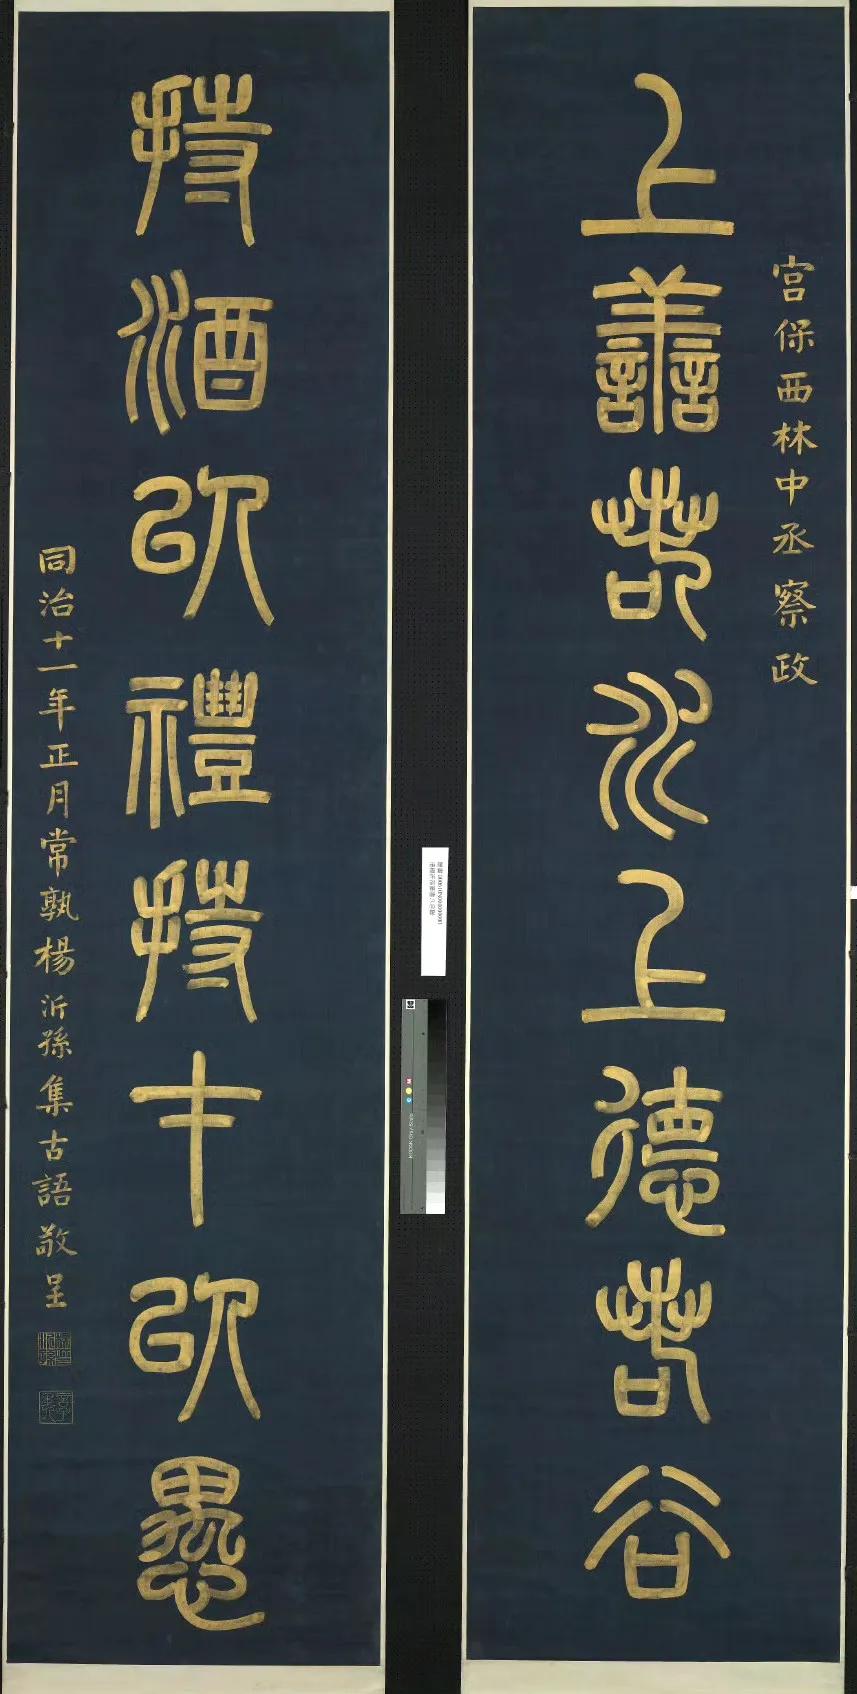 宫保西林中丞察政
上善若水上德若谷
持酒以禮持才以愚
同治十一年正月常孰楊沂孫集古語敬呈